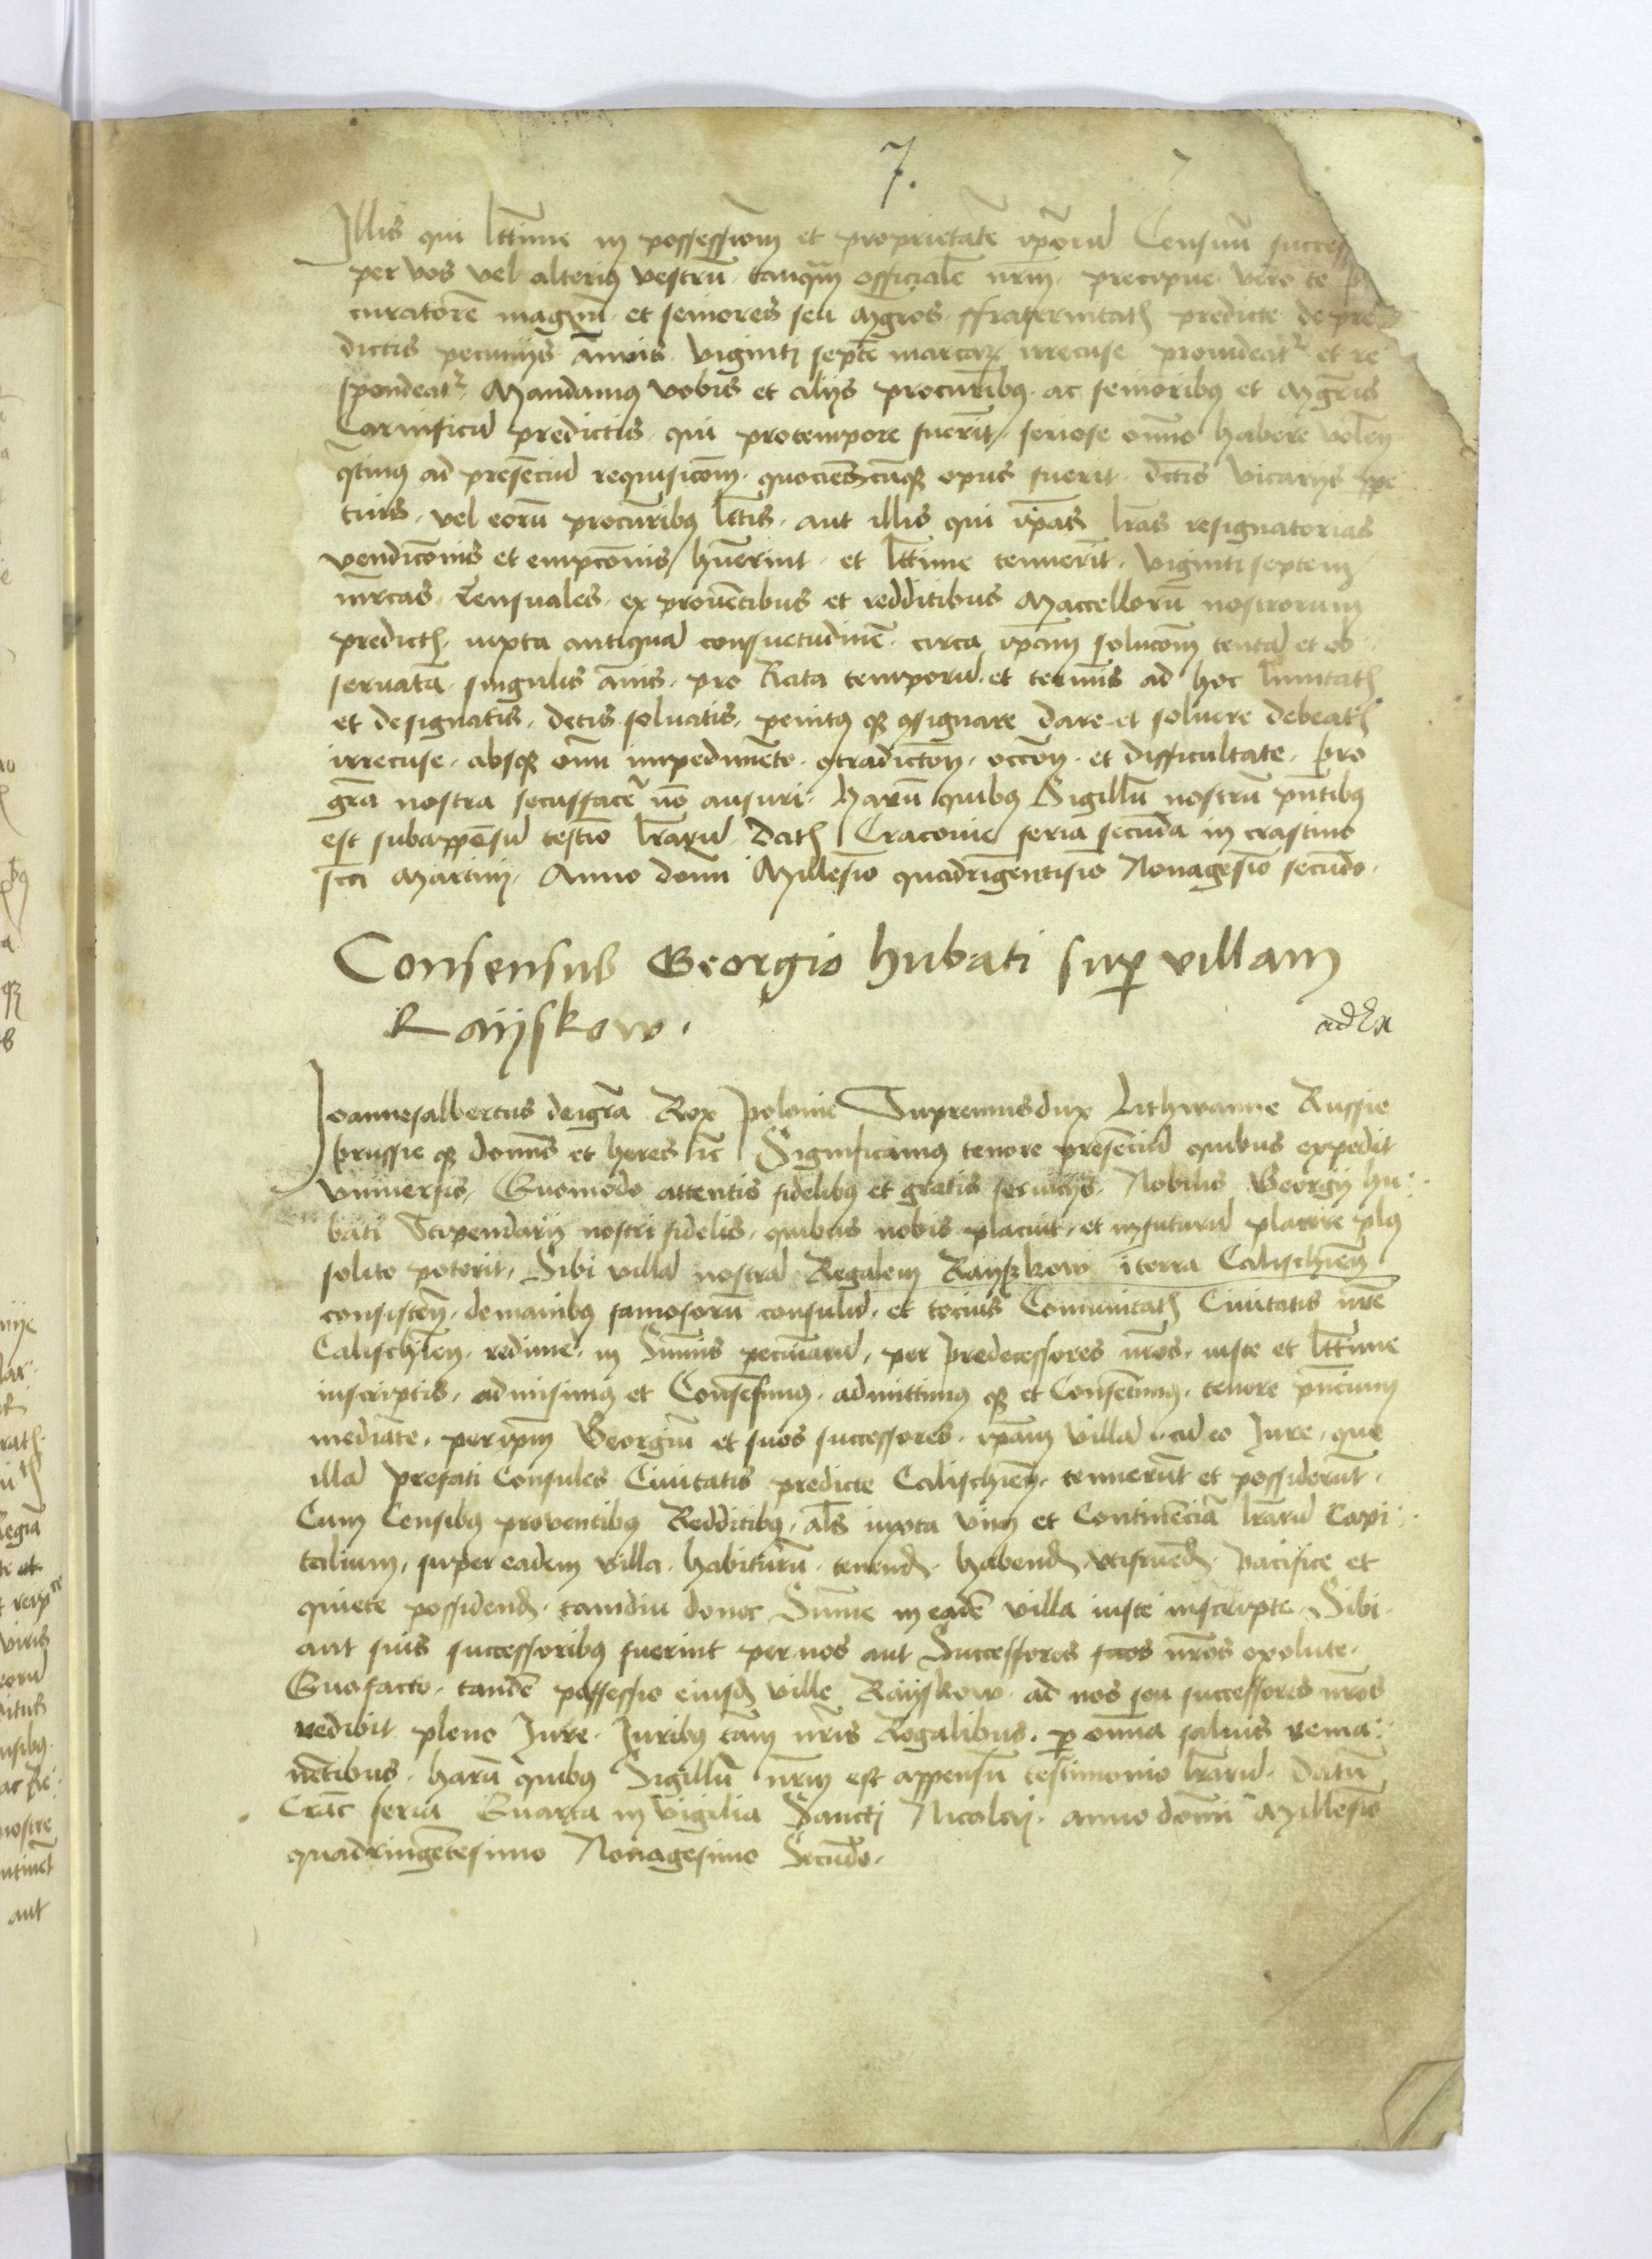 7.
Illis qui lttime in possessiom et proprietate iporu Censuu success
per vos vel alterius vestru tanqm officiale nrm precipue vero te p
curatore magnu et seniores seu mgros ffraternitatis predicte de pre
dictis pecuniis annuis viginti septe marcarum irrecuse provideatur et re
spondeatur Mandamus vobis et aliis procuribus ac senioribus et mgris
Carnificu predictis qui protempore fuerit seriose omno habere volen
qtinus ad presenciu requisicom quocienscunque opus fuerit dctis vicariis ppe
tuis vel eoru procuribus lttis aut illis qui ipas lras resignatorias
vendiconis et empconis huerint et lttime tenuerit viginti septem
mrcas Censuales ex proventibus et redditibus Maccelloru nostrorum
predictis iuxta antiqua consuetudine circa ipam solucom tenta et ob
servata singulis annis pro Rata temporu et terminis ad hoc limitatis
et designatis detis solvatis penitus que consignare dare et solvere debeatis
irrecuse absque omni impedimento contradicton occon et difficultate pro
gra nostra secusfacere no ausuri Haru quibus Sigillu nostru pntibus
est subappensu testio lraru Datis Cracovie feria secunda in crastino
scti Martini Anno domi Millesio quadringentisio Nonagesio secundo
Consensus Georgio hubati super villam
Raijskow
ad Ex
Joannesalbertus deigra Rex polonie Supremusdux Lithwanie Russie
prussie que domns et heres etc Significamus tenore presenciu quibus expedit
universis Quomodo attentis fidelibus et gratis serviciis Nobilis Georgij hu
bati Stipendarij nostri fidelis quibus nobis placuit et infuturu placere plus
solito poterit Sibi villa nostra Regalem Raijskow i terra Calischien
consisten demanibus famosoru consulu et tocius Comunitatis Civitatis nre
Calischien redime in Summis pecuniaru per predecessores nros iuste et lttime
inscriptis admisimus et Consesimus admittimus que et Consetimus tenore pncium
mediate peripm Georgiu et suos successores ipam villa cu eo Jure quo
illa prefati Consules Civitatis predicte Calischien tenuerut et possiderut
Cum Censibus proventibus Redditibus als iuxta vim et Continencia lraru Capi
talium super eadem villa habituru tenend habend utifruend pacifice et
quiete possidend tamdiu donec Summe in eade villa iuste inscripte Sibi
aut suis successoribus fuerint per nos aut Successores suos nros exolute
Quofacto tande possessio eiusd ville Raijskow ad nos seu successores nros
redibit pleno Jure Juribus tam nris Regalibus per omnia salvis rema
netibus haru quibus Sigillu nrm est appensu testimonio lraru Datu
Crac feria Quarta in vigilia Sancti Nicolai anno domi Millesio
quadringetesimo Nonagesimo Secudo